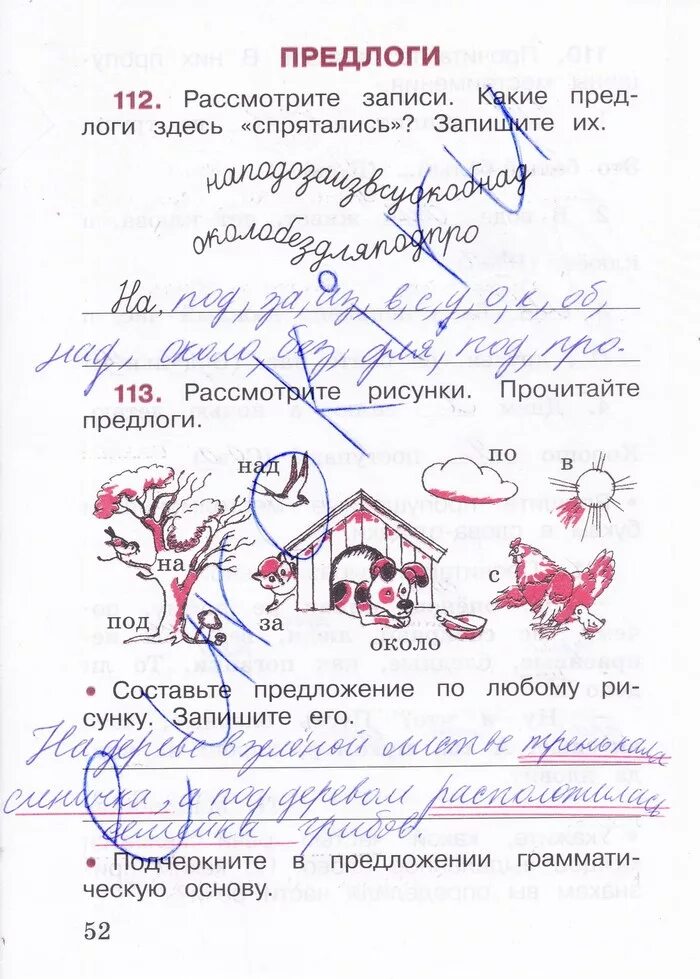 ПРЕДЛОГИ
112. Рассмотрите записи. Какие пред-
логи здесь «спрятались»? Запишите их.
наподозаизвсуокобнад
околобездляподпро
На, под, за, из, в, с, у, о, к, об,
над около, без, для, под, про.
113. Рассмотрите рисунки. Прочитайте
предлоги.
над
по
в
на
с
под
за
около
• Составьте предложение по любому ри-
сунку. Запишите его.
На дереве в зелёной листве тренькала
синичка, а под деревом расположилась
семейка грибов.
• Подчеркните в предложении граммати-
ческую основу.
52